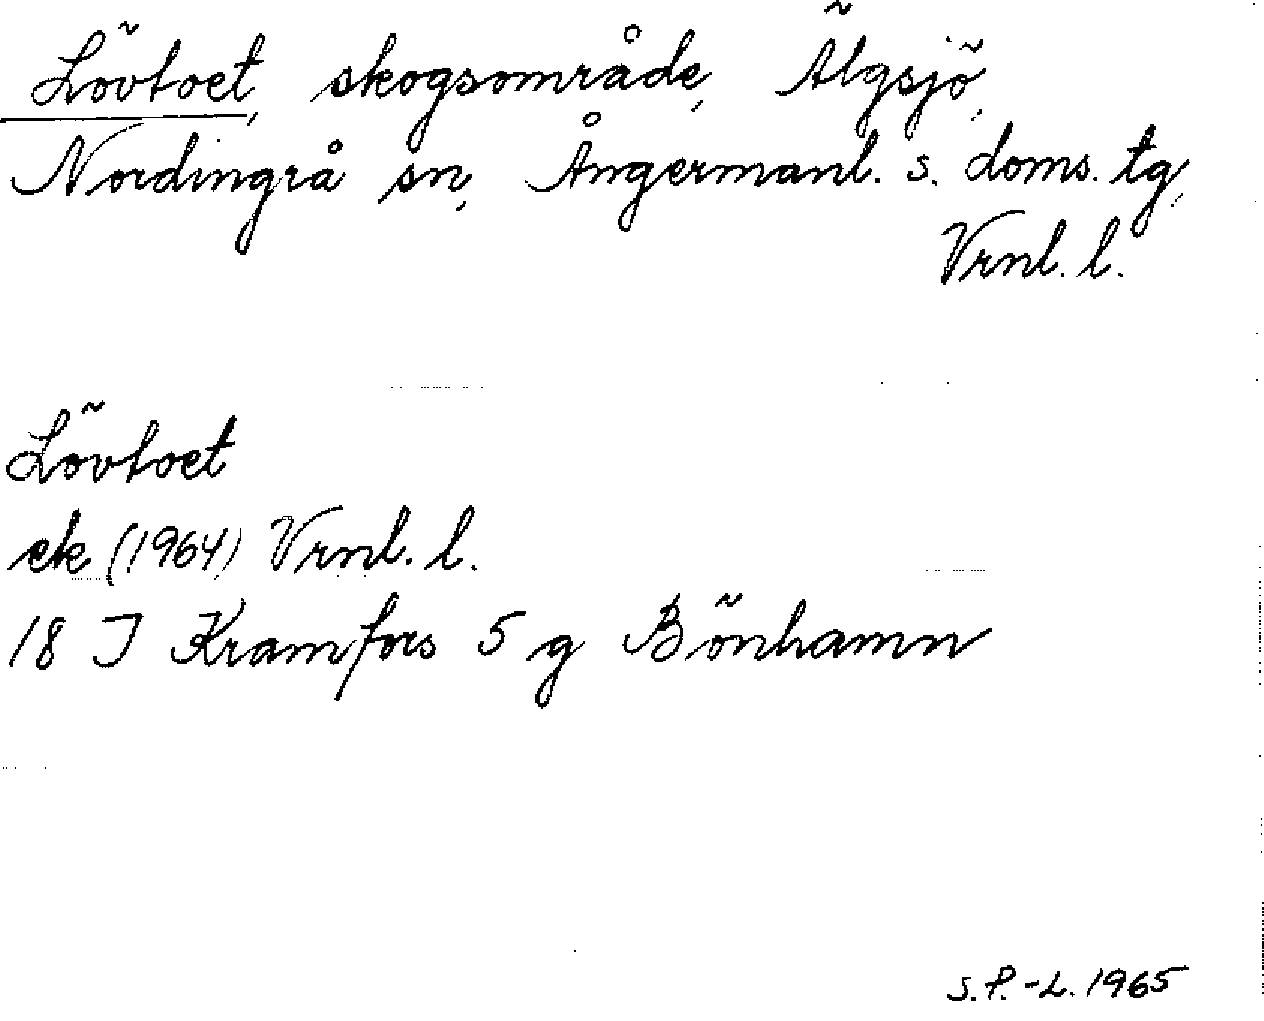 Lövtoet, skogsområde, Älgsjö,
Nordingrå sn, Ångermanl. s. doms. tg,
Vrnl. l.
Lövtoet
ek (1964) Vrnl. l.
18 J Kramfors 5 g Bönhamn
S.P.-L. 1965